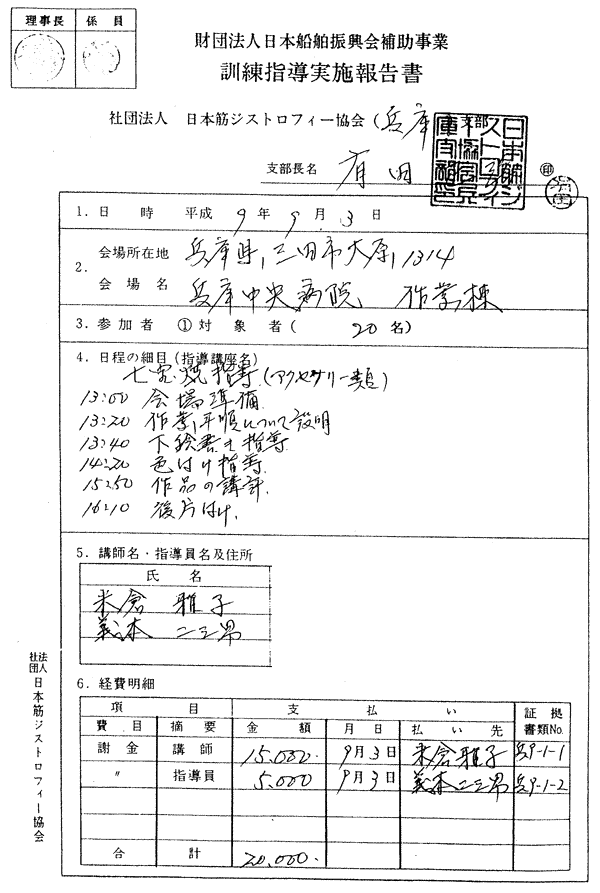 理事長 係員
財団法人日本船舶振興会補助事業
訓練指導実施報告書
社団法人 日本筋ジストロフィー協会(兵庫
支部
支部長名 有田
印
1. 日 時 平成 9年 9月 3日
2. 会場所在地 兵庫県三田市大原1314
会場名 兵庫中央病院 作業棟
3. 参加者 ①対象者( 20名)
4. 日程の細目(指導講座名)
七宝焼指導(アクセサリー類)
13:00 会場準備
13:20 作業手順について説明
13:40 下絵書き指導
14:20 色付け指導
15:50 作品の講評
16:10 後片付け
5. 講師名・指導員名及住所
氏 名
米倉 雅子
義本 二三男
6. 経費明細
項 目 支 払 い 証拠書類No.
費 目 摘 要 金 額 月 日 払い先
謝金 講師 15,000. 9月3日 米倉雅子 兵9-1-1
〃 指導員 5,000. 9月3日 義本二三男 兵9-1-2
合 計 20,000.
社団法人 日本筋ジストロフィー協会